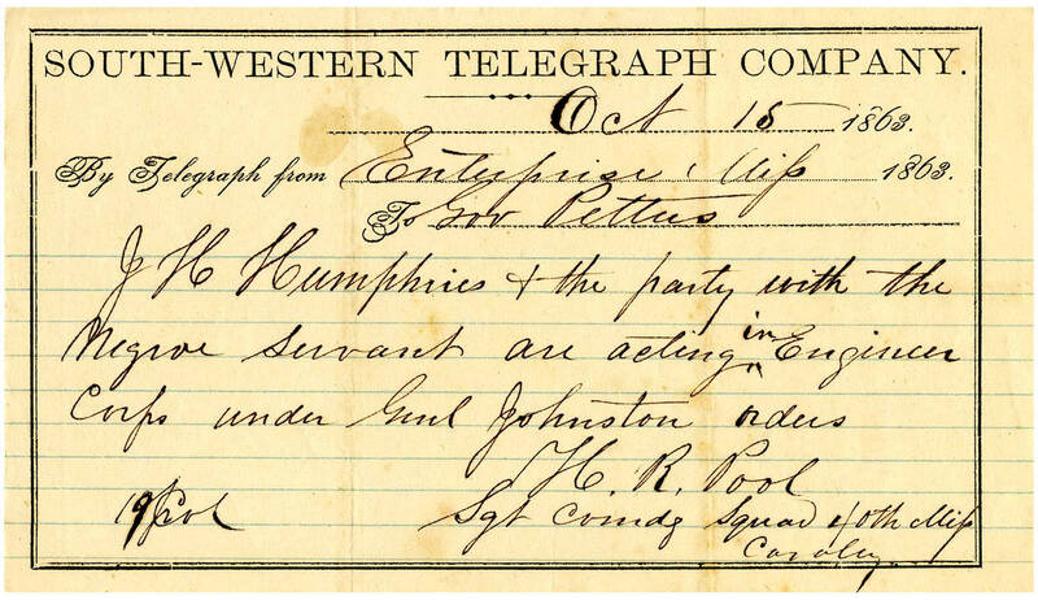 SOUTH-WESTERN TELEGRAPH COMPANY.
Oct 15 1863.
By Telegraph from Enterprise, Miss 1863.
To Gov Pettus
J H Humphries & the party with the
Negroe servant are acting in Engineer
Corps under Genl Johnston orders
H. R. Pool
Sgt Comdg Squad 40th Miss
Cavalry